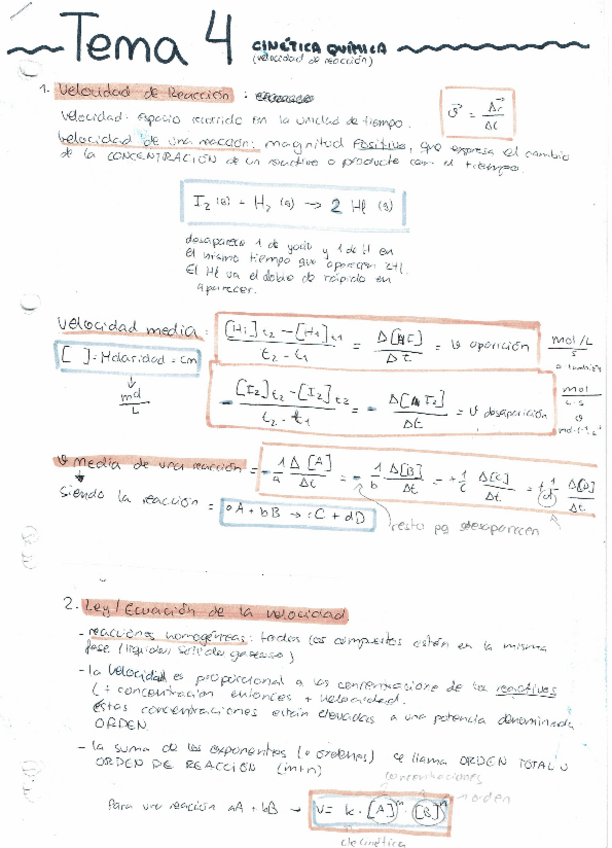 Tema 4 CINÉTICA QUÍMICA
(velocidad de reacción)
1. Velocidad de Reacción :
Velocidad: espacio recorrido en la unidad de tiempo. v = Δr / Δt
Velocidad de una reacción: magnitud Positiva, que expresa el cambio
de la CONCENTRACIÓN de un reactivo o producto con el tiempo.
I2 (g) + H2 (g) → 2 HI (g)
desaparece 1 de yodo y 1 de H en
el mismo tiempo que aparecen 2HI.
El HI va el doble de rápido en
aparecer.
Velocidad media: [HI]t2 − [HI]t1 / t2 − t1 = Δ[HI] / Δt = v aparición mol/L / s
[ ] = Molaridad = cm
mol / L
− [I2]t2 − [I2]t2 / t2 − t1 = − Δ[I2] / Δt = v desaparición mol / L·s
v media de una reacción = − 1/a Δ[A]/Δt = − 1/b Δ[B]/Δt = + 1/c Δ[C]/Δt = + 1/d Δ[D]/Δt
siendo la reacción = aA + bB → cC + dD
resto pq desaparecen
2. Ley/Ecuación de la velocidad
- reacciones homogéneas: todos los compuestos están en la misma
fase (líquida, sólida, gaseoso)
- la velocidad es proporcional a las concentracione de los reactivos
(+ concentración entonces + velocidad.
éstas concentraciones están elevadas a una potencia denominada
ORDEN.
- la suma de los exponentes (o órdenes) se llama ORDEN TOTAL U
ORDEN DE REACCIÓN (m+n)
concentraciones
Para una reacción aA + bB → V = k · [A]ⁿ · [B]ᵐ orden
cte cinética